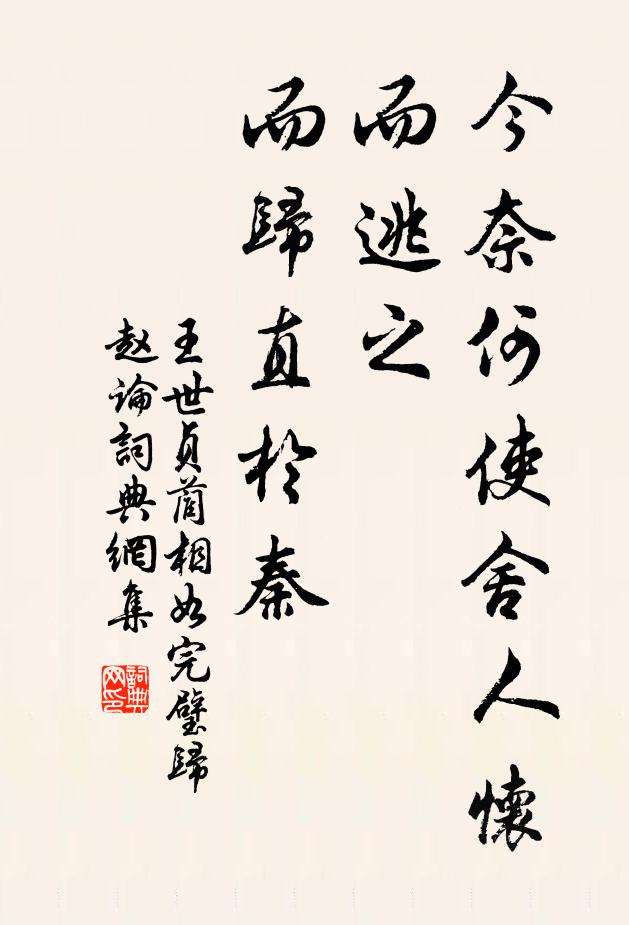 今奈何使舍人懷
而逃之
而歸直於秦
王世貞藺相如完璧歸
赵論詞典網集
詞典网印